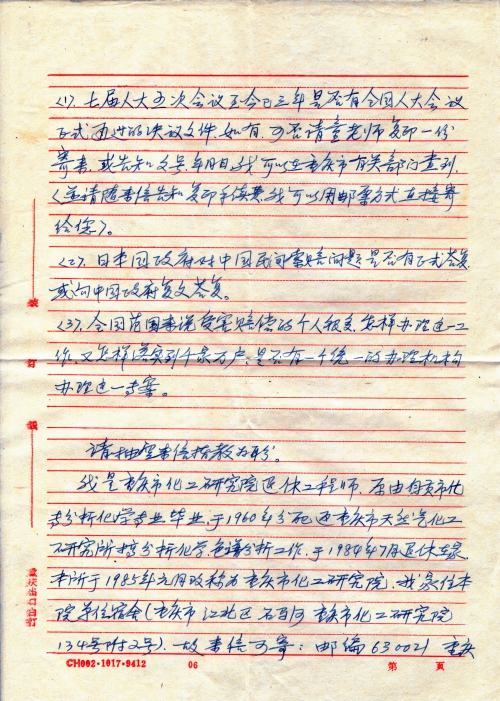 <1>. 七届人大五次会议至今已三年是否有全国人大会议
正式通过的决议文件，如有，可否请童老师复印一份
寄来，或告知文号、年月日，我可以在重庆市有关部门查到，
(并请随来信告知复印手续费，我可以用邮票方式直接寄
给您)。
<2>. 日本国政府对中国民间索赔问题是否有正式答复
或向中国政府复文答复。
<3>. 全国范围来说受害赔偿的个人很多，怎样办理这一工
作，又怎样落实到千家万户，是否有一个统一的办理机构
办理这一专案。
请抽空来信指教为盼。
我是重庆市化工研究院退休工程师，原由自贡市化
专分析化学专业毕业，于1960年分配至重庆市天然气化工
研究所搞分析化学色谱分析工作，于1984年7月退休在家，
本所于1985年元月改称为重庆市化工研究院，我家住本
院单住宿舍(重庆市江北区石马河重庆市化工研究院
134号附2号)，故来信可寄：邮编630021 重庆
装
订
线
重庆出口自订
CH002·1017·9412 06 第 页